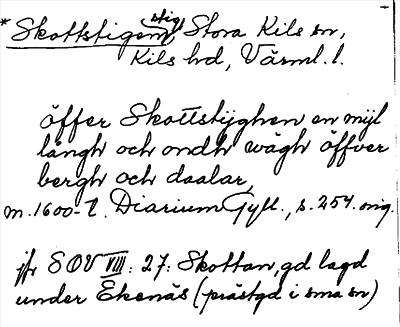 * Skottstigen, stig Stora Kils sn,
Kils hd, Värml. l.
öffer Skottstÿghen en mÿl
långh och ondh wägh öffver
bergh och daalar,
m. 1600-t. Diarium Gyll., s. 254. orig.
jfr SOV VIII: 27: Skottan, gd lagd
under Ekenäs (prästgd i sma sn)